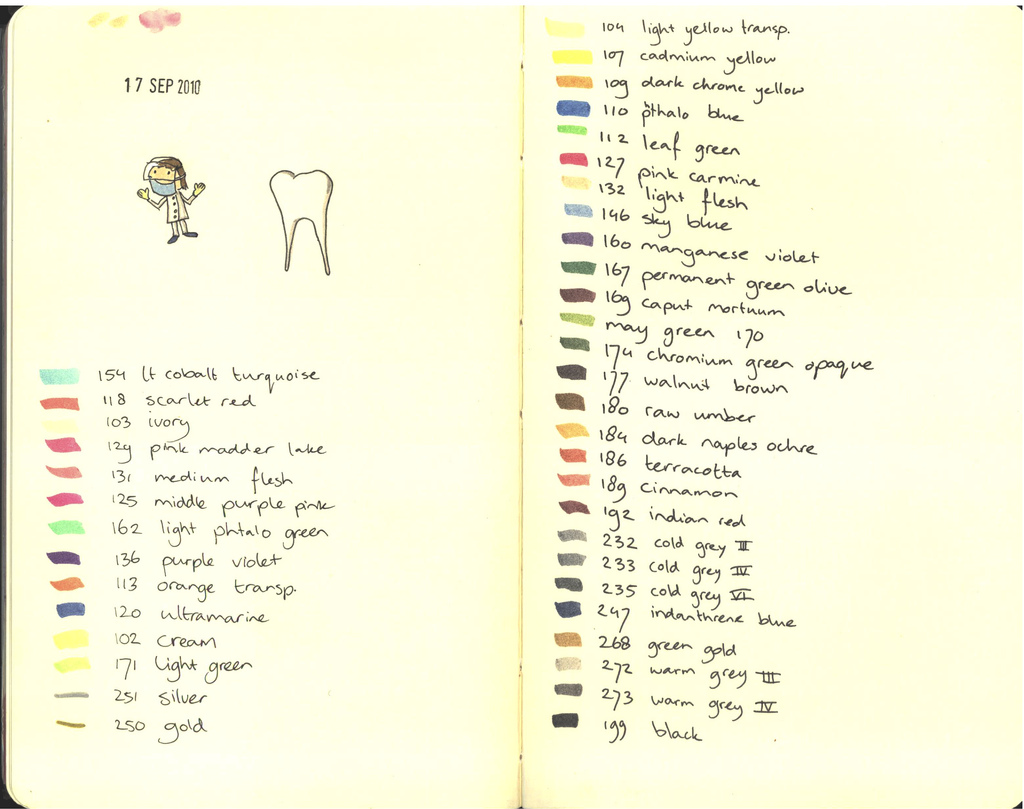 17 SEP 2010
154 lt cobalt turquoise
118 scarlet red
103 ivory
129 pink madder lake
131 medium flesh
125 middle purple pink
162 light phtalo green
136 purple violet
113 orange transp.
120 ultramarine
102 cream
171 light green
251 silver
250 gold
104 light yellow transp.
107 cadmium yellow
109 dark chrome yellow
110 pthalo blue
112 leaf green
127 pink carmine
132 light flesh
146 sky blue
160 manganese violet
167 permanent green olive
169 caput mortuum
may green 170
174 chromium green opaque
177 walnut brown
180 raw umber
184 dark naples ochre
186 terracotta
189 cinnamon
192 indian red
232 cold grey III
233 cold grey IV
235 cold grey VI
247 indanthrene blue
268 green gold
272 warm grey III
273 warm grey IV
199 black